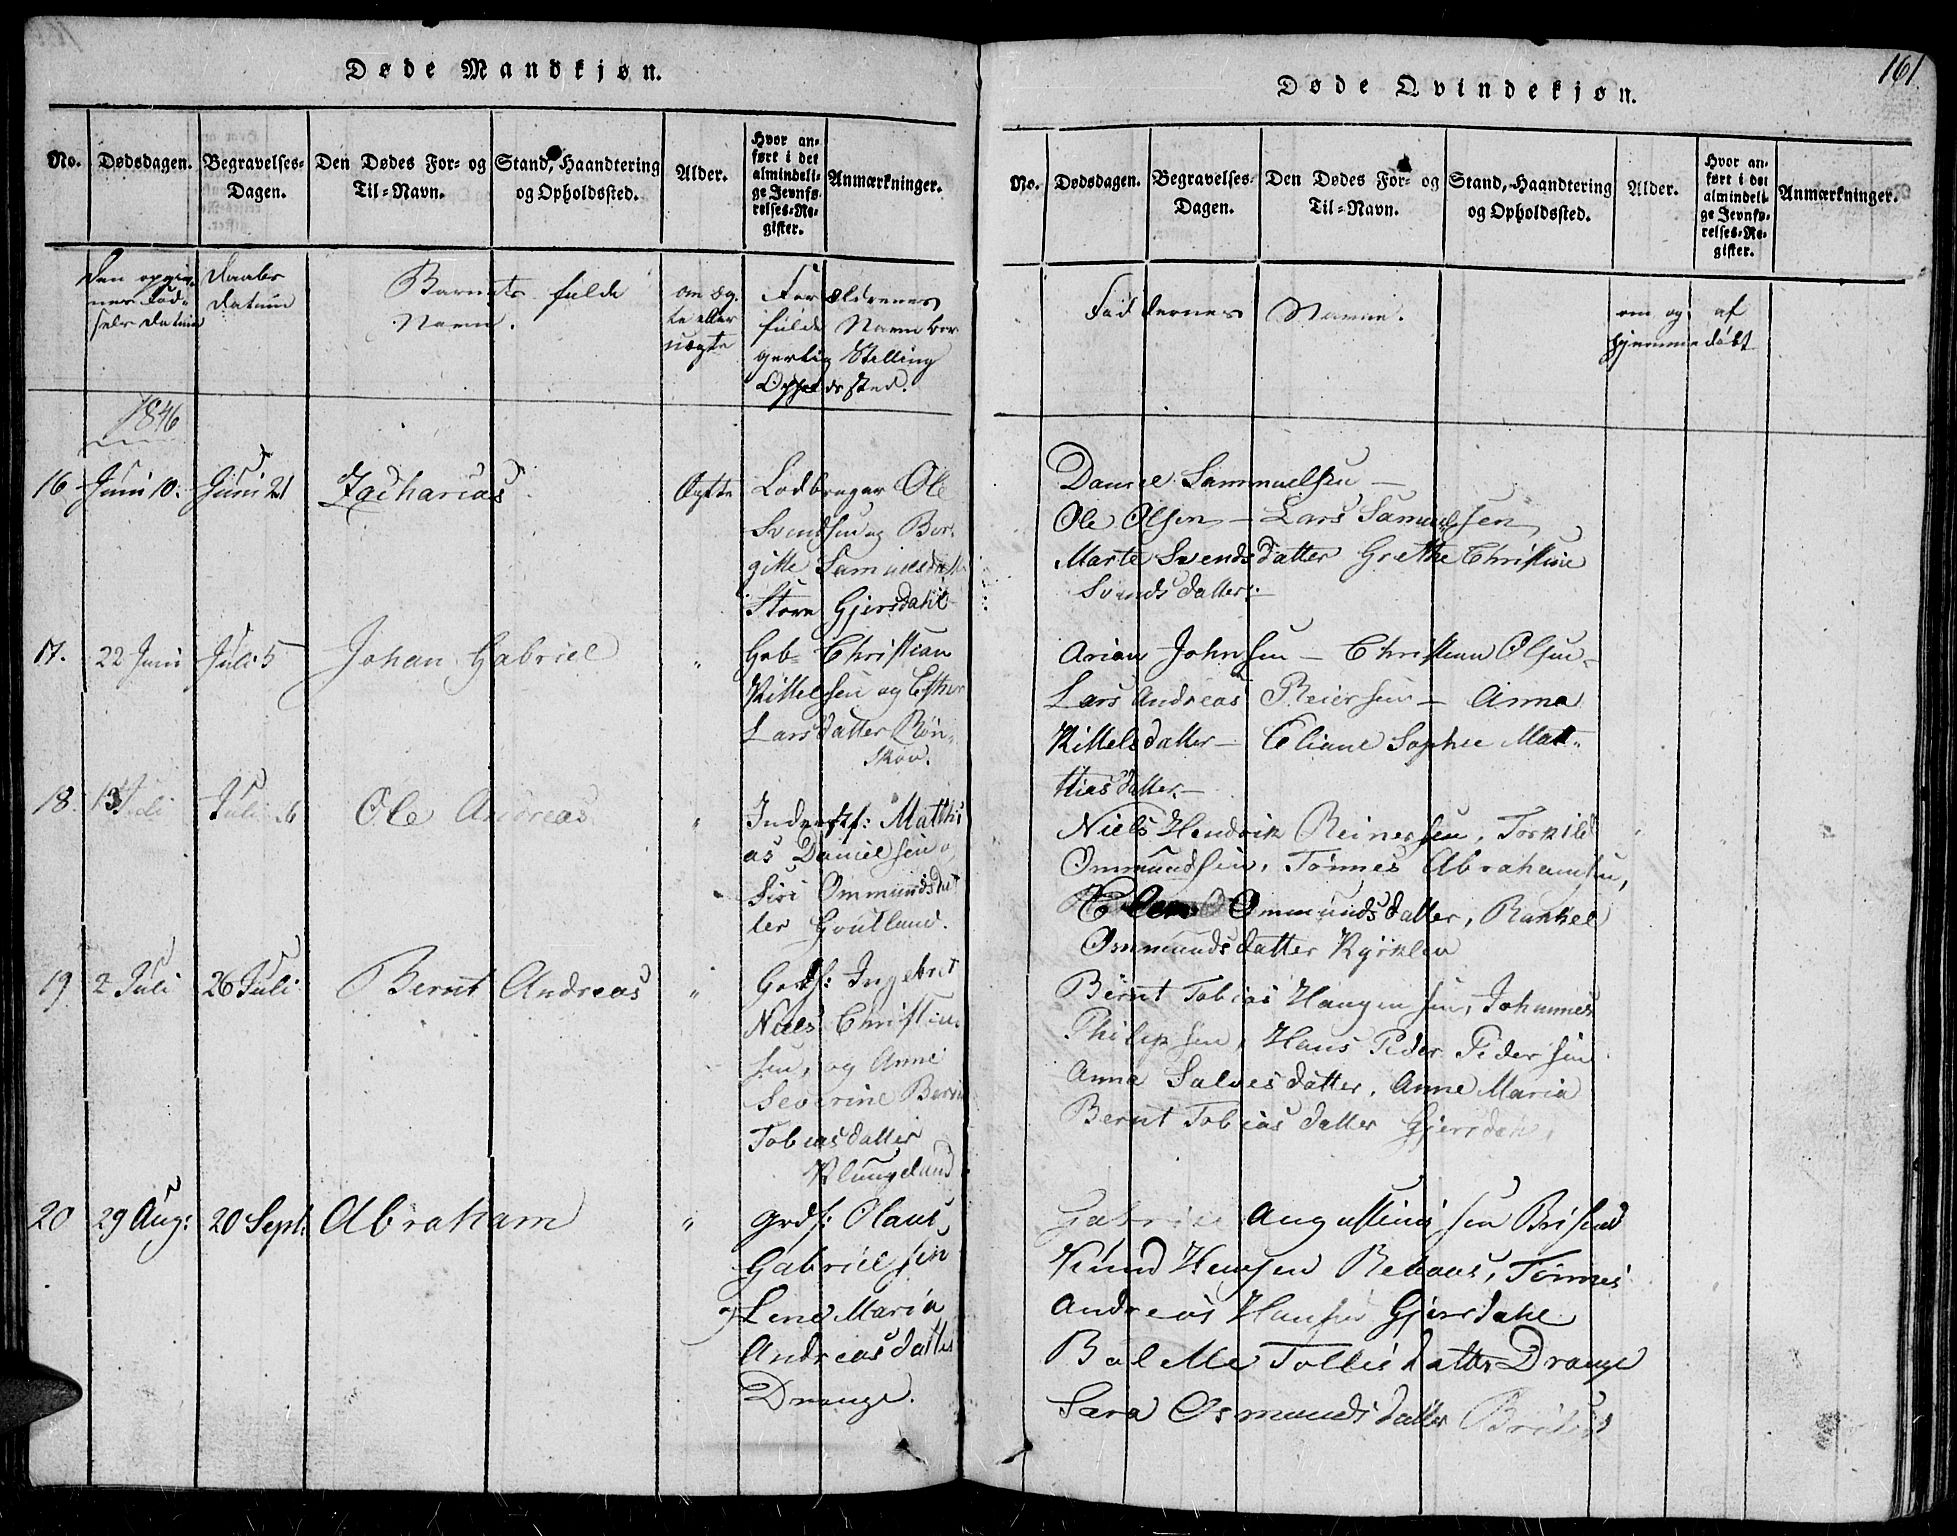 Døde Mandkjøn.
No. Dødsdagen. Begravelses-Dagen. Den Dødes For- og Til-Navn. Stand, Haandtering og Opholdssted. Alder. Hvor anført i det almindelige Jevnførelses-Register. Anmærkninger.
Den opgivne Fødsels Datum
Daabs Datum
Barnets fulde Navn.
om ægte eller uægte
Forældrenes fulde Navn borgerlig Stilling Opholdssted.
1846
16 Juni 10. Juni 21 Zacharias Ægte Lodbruger Ole
Svendsen og Ber-
gitte Samuelsdatt
Store Gjersdahl
17. 22 Juni Juli 5 Johan Gabriel " Gbr Christian
Kittelsen og Esther
Larsdatter Røn-
skov.
18. Juli Juli 26 Ole Andreas " Inderstf: Matthi
as Danielsen o
Siri Ommundsdat
ter Goutland.
19 2 Juli 26 Juli Bernt Andreas " Gbrdf: Ingebret
Niels Christian
sen, og Anne
Severine Bernt
Tobiasdatter
Klungeland
20 29 Aug: 20 Sept. Abraham " grdf: Olaus
Gabrielsen
og Lene Maria
Andreasdatter
Drange.
161
Døde Qvindekjøn.
No. Dødsdagen. Begravelses-Dagen. Den Dødes For- og Til-Navn. Stand, Haandtering og Opholdssted. Alder. Hvor anført i det almindelige Jevnførelses-Register. Anmærkninger.
Faddernes Navne.
om og af
hjemmedøbt
Daniel Sammuelsen —
Ole Olsen — Lars Samuelsen
Marte Svendsdatter Grethe Christine
Svendsdatter. —
Arian Johnsen — Christian Olsen —
Lars Andreas Reiersen — Anna
Kittelsdatter — Eliane Sophie Mat-
thiasdatter. —
Niels Hendrik Reinertsen, Torkild
Ommundsen, Tønnes Abrahamsen,
Ommundsdatter, Rankel
Ommundsdatter Kyrklev
Bernt Tobias Haugensen, Johannes
Philipsen, Hans Peder Pedersen
Anna Salvesdatter, Anne Maria
Bernt Tobiasdatter Gjersdahl,
Gabriel Augustinussen Brisend
Knud Hansen Rebaas, Tønnes
Andreas Hansen Gjersdahl
Bolette Tollisdatter Drange
Sara Osmundsdatter